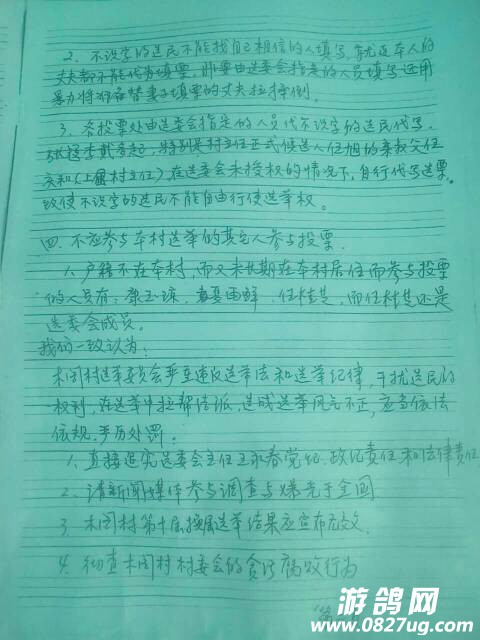 2. 不识字的选民不能找自己相信的人填写，就连本人的
丈夫都不能代为填票，非要由选委会指定的人员填写，还用
暴力将准备替妻子填票的丈夫拉摔倒。
3. 各投票处由选委会指定的人员代不识字的选民代写，
张冠李戴，特别是村主任正式候选人任旭的亲叔父任
庆和(上届村主任)在选委会未授权的情况下，自行代写选票，
致使不识字的选民不能自由行使选举权。
四. 不应参与本村选举的其它人参与投票.
1. 户籍不在本村，而又未长期在本村居住而参与投票
的人员有：任桂芝，而任桂芝还是
选委会成员。
我们一致认为：
木闲村选举委员会严重违反选举法和选举纪律，干扰选民的
权利，在选举中拉帮结派，造成选举风气不正，应当依法
依规，严厉处罚：
1. 直接追究选委会主任王永春党纪、政纪责任和法律责任
2. 请新闻媒体参与调查与曝光于全国
3. 木闲村第十届换届选举结果应宣布无效.
4. 彻查木闲村村委会的贪污腐败行为
游鸽网
www.0827ug.com